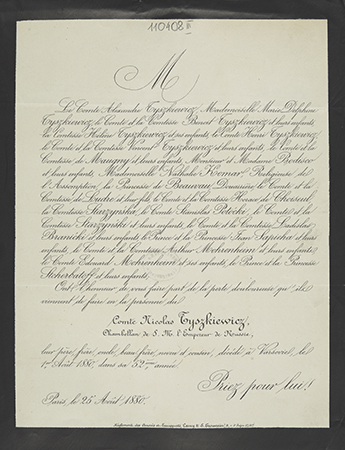 110402 II
M
Le Comte Alexandre Tyszkiewicz, Mademoiselle Marie Delphine
Tyszkiewicz, le Comte et la Comtesse Benoit Tyszkiewicz et leurs enfants,
la Comtesse Hélène Tyszkiewicz et ses enfants, le Comte Henri Tyszkiewicz,
le Comte et la Comtesse Vincent Tyszkiewicz et leurs enfants, le Comte et la
Comtesse de Maugny et leurs enfants, Monsieur et Madame Bodisco
et leurs enfants, Mademoiselle Nathalie Komar Religieuse de
l'Assomption, la Princesse de Beauvau Douairière, le Comte et la
Comtesse de Ludre et leur fils, le Comte et la Comtesse Horace de Choiseul,
la Comtesse Starzynska, le Comte Stanislas Potocki, le Comte et la
Comtesse Starzynski et leurs enfants, le Comte et la Comtesse Ladislas
Branicki et leurs enfants, le Prince et la Princesse Jean Sapieha et leurs
enfants, le Comte et la Comtesse Arthur Mohrenheim et leurs enfants,
le Comte Edouard Mohrenheim et ses enfants, le Prince et la Princesse
Stcherbatoff et leurs enfants,
Ont l'honneur de vous faire part de la perte douloureuse qu'ils
viennent de faire en la personne du
Comte Nicolas Tyszkiewicz,
Chambellan de S. M. l'Empereur de Russie,
leur père, frère, oncle, beau-frère, neveu et cousin, décédé à Varsovie, le
1er Août 1880, dans sa 52me année.
Priez pour lui!
Paris, le 25 Août 1880.